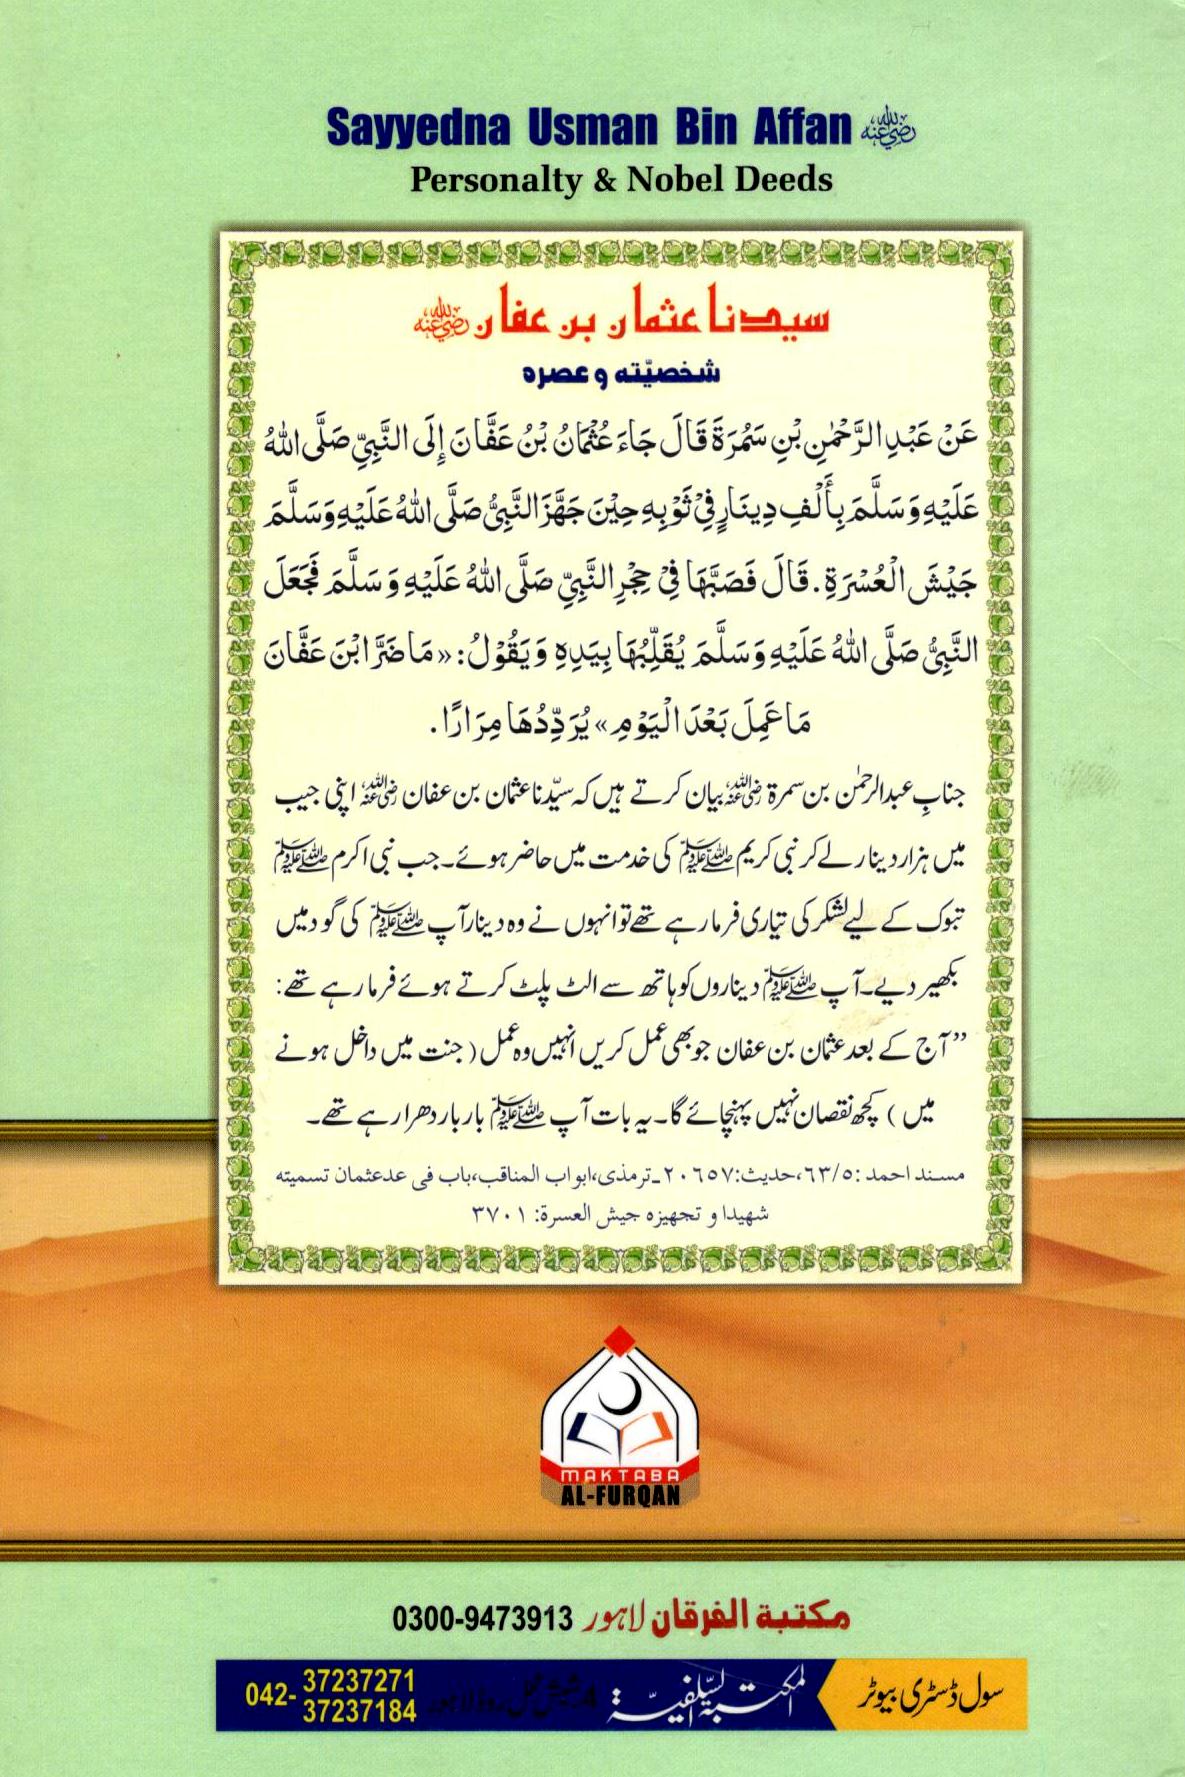 Sayyedna Usman Bin Affan رضي الله عنه
Personalty & Nobel Deeds
سيدنا عثمان بن عفان رضي الله عنه
شخصيّته و عصره
عَنْ عَبْدِ الرَّحْمٰنِ بْنِ سَمُرَةَ قَالَ جَاءَ عُثْمَانُ بْنُ عَفَّانَ إِلَى النَّبِيِّ صَلَّى اللهُ
عَلَيْهِ وَسَلَّمَ بِأَلْفِ دِينَارٍ فِيْ ثَوْبِهِ حِيْنَ جَهَّزَ النَّبِيُّ صَلَّى اللهُ عَلَيْهِ وَسَلَّمَ
جَيْشَ الْعُسْرَةِ. قَالَ فَصَبَّهَا فِيْ حِجْرِ النَّبِيِّ صَلَّى اللهُ عَلَيْهِ وَسَلَّمَ فَجَعَلَ
النَّبِيُّ صَلَّى اللهُ عَلَيْهِ وَسَلَّمَ يُقَلِّبُهَا بِيَدِهِ وَيَقُوْلُ: «مَا ضَرَّ ابْنَ عَفَّانَ
مَا عَمِلَ بَعْدَ الْيَوْمِ» يُرَدِّدُهَا مِرَارًا.
جنابِ عبدالرحمٰن بن سمرۃ رضی اللہ عنہ بیان کرتے ہیں کہ سیّدنا عثمان بن عفان رضی اللہ عنہ اپنی جیب
میں ہزار دینار لے کر نبی کریم ﷺ کی خدمت میں حاضر ہوئے۔ جب نبی اکرم ﷺ
تبوک کے لیے لشکر کی تیاری فرما رہے تھے تو انہوں نے وہ دینار آپ ﷺ کی گود میں
بکھیر دیے۔ آپ ﷺ دیناروں کو ہاتھ سے الٹ پلٹ کرتے ہوئے فرما رہے تھے:
”آج کے بعد عثمان بن عفان جو بھی عمل کریں انہیں وہ عمل (جنت میں داخل ہونے
میں) کچھ نقصان نہیں پہنچائے گا۔ یہ بات آپ ﷺ بار بار دھرا رہے تھے۔
مسند احمد :٦٣/٥، حديث:٢٠٦٥٧۔ترمذی،ابواب المناقب،باب فی عدعثمان تسميته
شهيدا و تجهيزه جيش العسرة: ٣٧٠١
MAKTABA
AL-FURQAN
مكتبة الفرقان لاہور 0300-9473913
سول ڈسٹری بیوٹر
المکتبۃ السّلفیۃ 4 شیش محل روڈ لاہور 042- 37237271
37237184